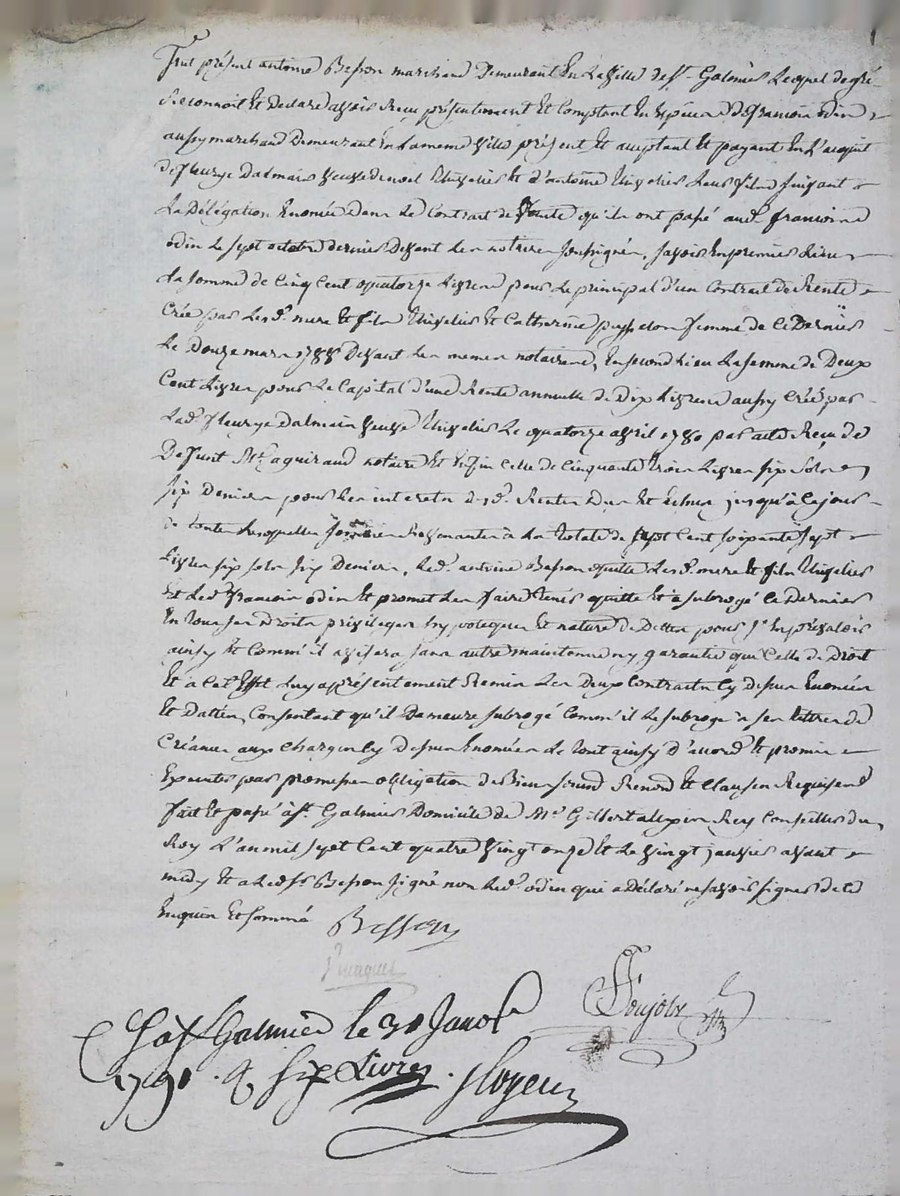 Fut présent antoine Besson marchand Demeurant En La ville de st. Galmier Lequel de gré
Reconnoit Et Déclare avoir Recu présentement Et Comptant En Espèces De françois odin
aussy marchand Demeurant En La meme ville présent Et aceptant Et payant En L'acquit
de fleurye Dalmais veuve de noel Et d'antoine Leur fils suivant
La Délégation Enoncée Dans Le Contrat de Vente qu'ils ont passé aud. françois
odin Le sept octobre dernier Devant Les notaires soussignés, savoir En premier Lieu
La somme de Cinq Cent quatorze Livres pour Le principal d'un Contrat de Rente
Créé par Lesd. mere Et fils Et Catherine femme de Ce Dernier
Le Douze mars 1788 Devant Les memes notaires, En second Lieu La somme de Deux
Cent Livres pour Le Capital d'une Rente annuelle de Dix Livres aussy Créé par
Lad. fleurye dalmais veuve Le quatorze avril 1780 par acte Recu de
Defunt Me. notaire Et Enfin Celle de Cinquante trois Livres six sols
six Deniers pour Les interets desd. Rentes Dus Et Echus jusqu'à Ce jour
de toutes Lesquelles sommes Revenantes à La totale de sept Cent soixante sept
Livres six sols six Deniers, Led. antoine Besson quitte Lesd. mere Et fils
Et Led. françois odin Et promet Les faire tenir quitte Et a subrogé Ce Dernier
En tous ses Droits privileges hypoteques Et nature de Dettes pour s'En prévaloir
ainsy Et Comm'il avisera sans autre maintenue ny garantie que Celle de Droit
Et à Cet Effet Luy a présentement Remis Les Deux Contrats Cy Dessus Enoncés
Et Dattés, Consentant qu'il Demeure subrogé Comm'il Le subroge à ses Lettres de
Créance aux Charges Cy Dessus Enoncées Le tout ainsy d'accord Et promis
Executer par promesses obligation de Biens soumis Renond. Et Clauses Requises
fait Et passé à st. Galmier Domicile de Me. Gilbert alexis Rey Conseiller du
Roy L'an mil sept Cent quatre vingt onze Et Le vingt janvier avant
midy Et a Led. sr. Besson signé non Led. odin qui a Déclaré ne savoir signer de Ce
Enquis Et sommé
Besson
Ponjols
à St Galmier le 31 Janvr
1791. R six Livres.